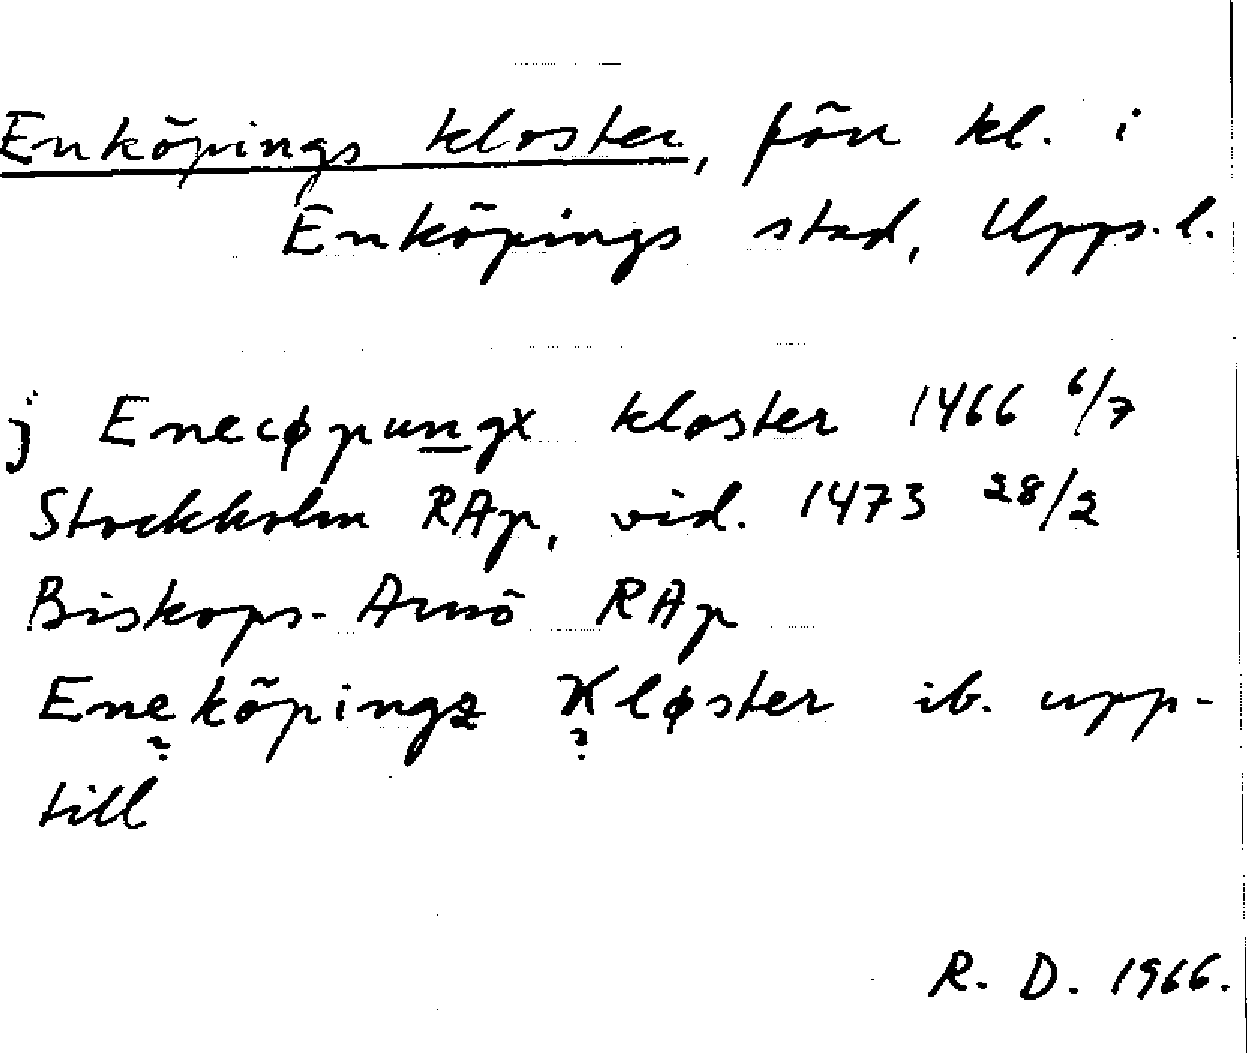 Enköpings kloster, förr kl. i
Enköpings stad, Upps. l.
j Enecøpungx kloster 1466 6/7
Stockholm RAp, vid. 1473 28/2
Biskops-Arnö RAp
Eneköpingz Kløster ib. upp-
? ?
till
R. D. 1966.